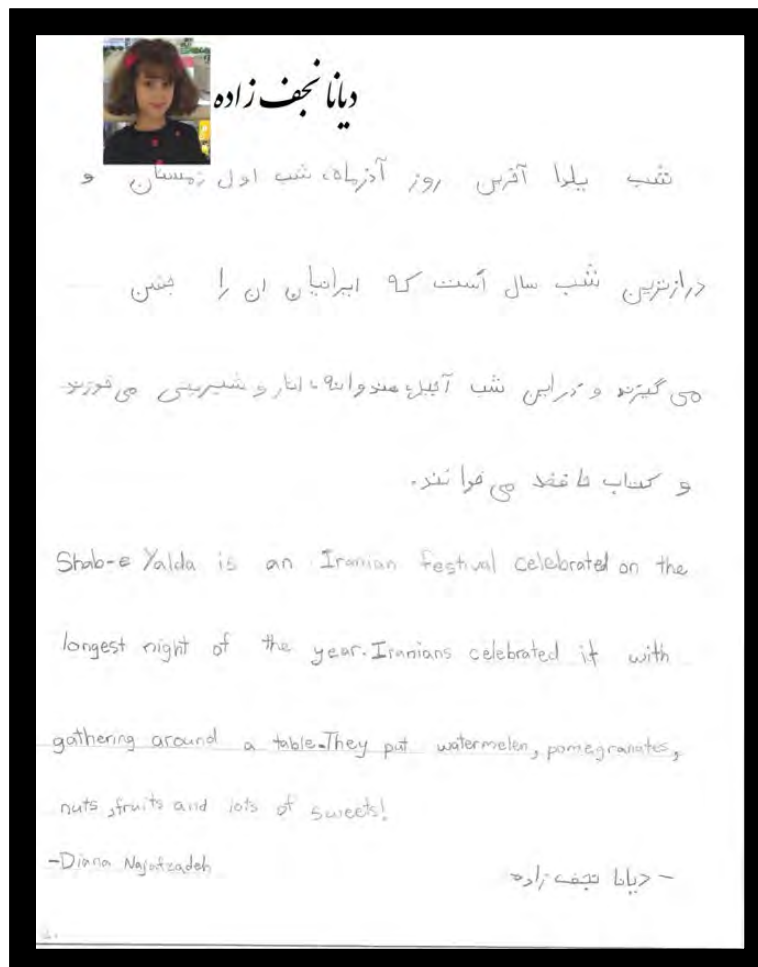 دیانا نجف زاده
شب یلدا آخرین روز آذرماه، شب اول زمستان و
درازترین شب سال است که ایرانیان ان را جشن
می گیرند و در این شب آجیل، هندوانه، انار و شیرینی می خورند
و کتاب حافظ می خوانند.
Shab-e Yalda is an Iranian festival celebrated on the
longest night of the year. Iranians celebrated it with
gathering around a table. They put watermelen, pomegranates,
nuts, fruits and lots of sweets!
-Diana Najafzadeh
- دیانا نجف زاده